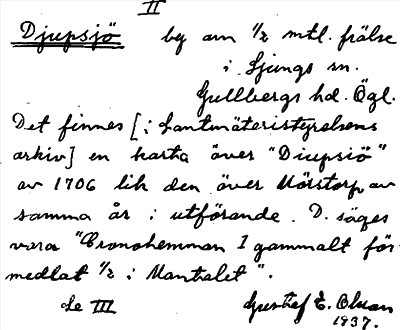 II
Djupsjö by om 1/2 mtl. frälse
i Ljungs sn.
Gullbergs hd. Ögl.
Det finnes [i Lantmäteristyrelsens
arkiv] en karta över "Diupsiö"
av 1706 lik den över Mörstorp av
samma år i utförande. D. säges
vara "Cronohemman 1 gammalt för-
medlat 1/2 i Mantalet".
Se III Gustaf E. Olsson
1937.